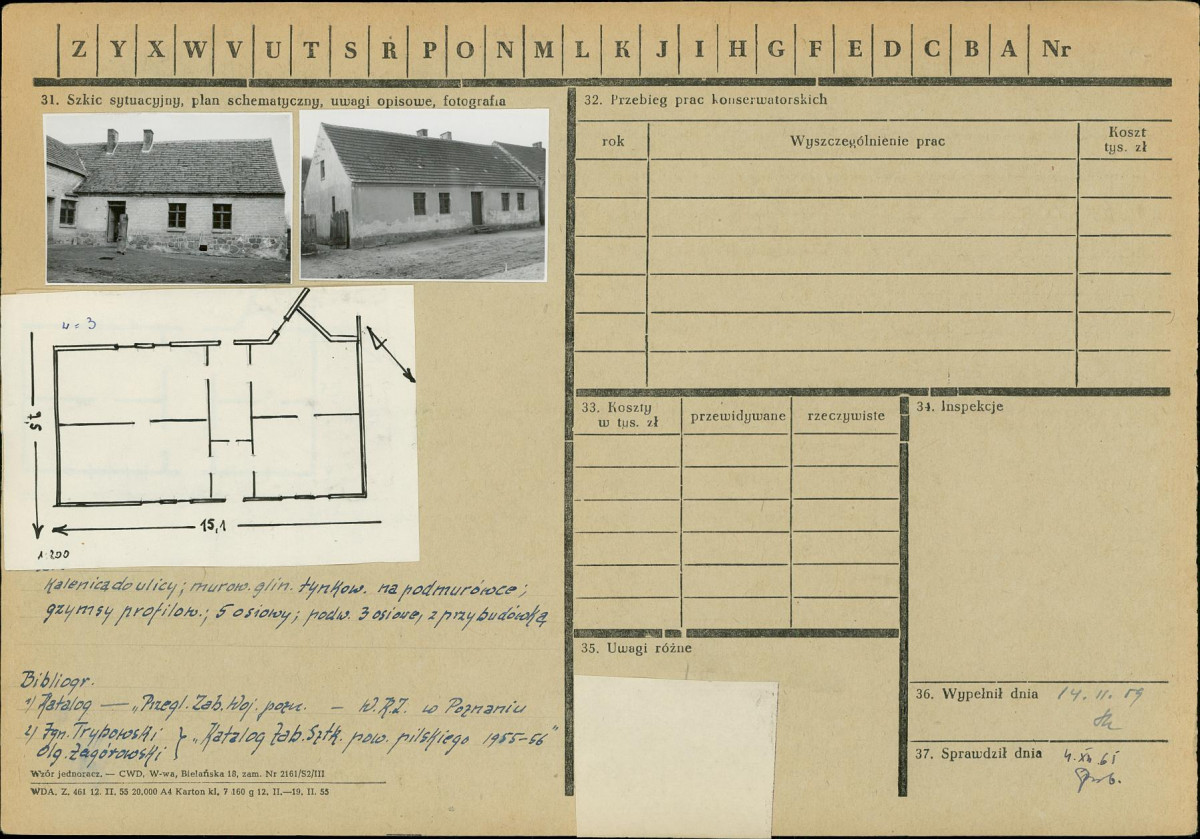 Z Y X W V U T S R P O N M L K J I H G F E D C B A Nr
31. Szkic sytuacyjny, plan schematyczny, uwagi opisowe, fotografia
u = 3
9,5
15,1
1:200
Kalenicą do ulicy; murow. glin. tynkow. na podmurówce;
gzymsy profilow.; 5 osiowy; podw. 3 osiowe, z przybudówką
Bibliogr.
1) Katalog — „Przegl. Zab. Woj. pozn. — W.K.Z. w Poznaniu
2) Zgn. Trybowski
Olg. Zagórowski } „Katalog Zab. Sztk. pow. pilskiego 1955-56"
Wzór jednoracz. — CWD, W-wa, Bielańska 18, zam. Nr 2161/S2/III
WDA. Z. 461 12. II. 55 20.000 A4 Karton kl. 7 160 g 12. II.—19. II. 55
32. Przebieg prac konserwatorskich
rok
Wyszczególnienie prac
Koszt
tys. zł
33. Koszty
w tys. zł
przewidywane
rzeczywiste
34. Inspekcje
35. Uwagi różne
36. Wypełnił dnia 14. II. 59
37. Sprawdził dnia 4. XII 61